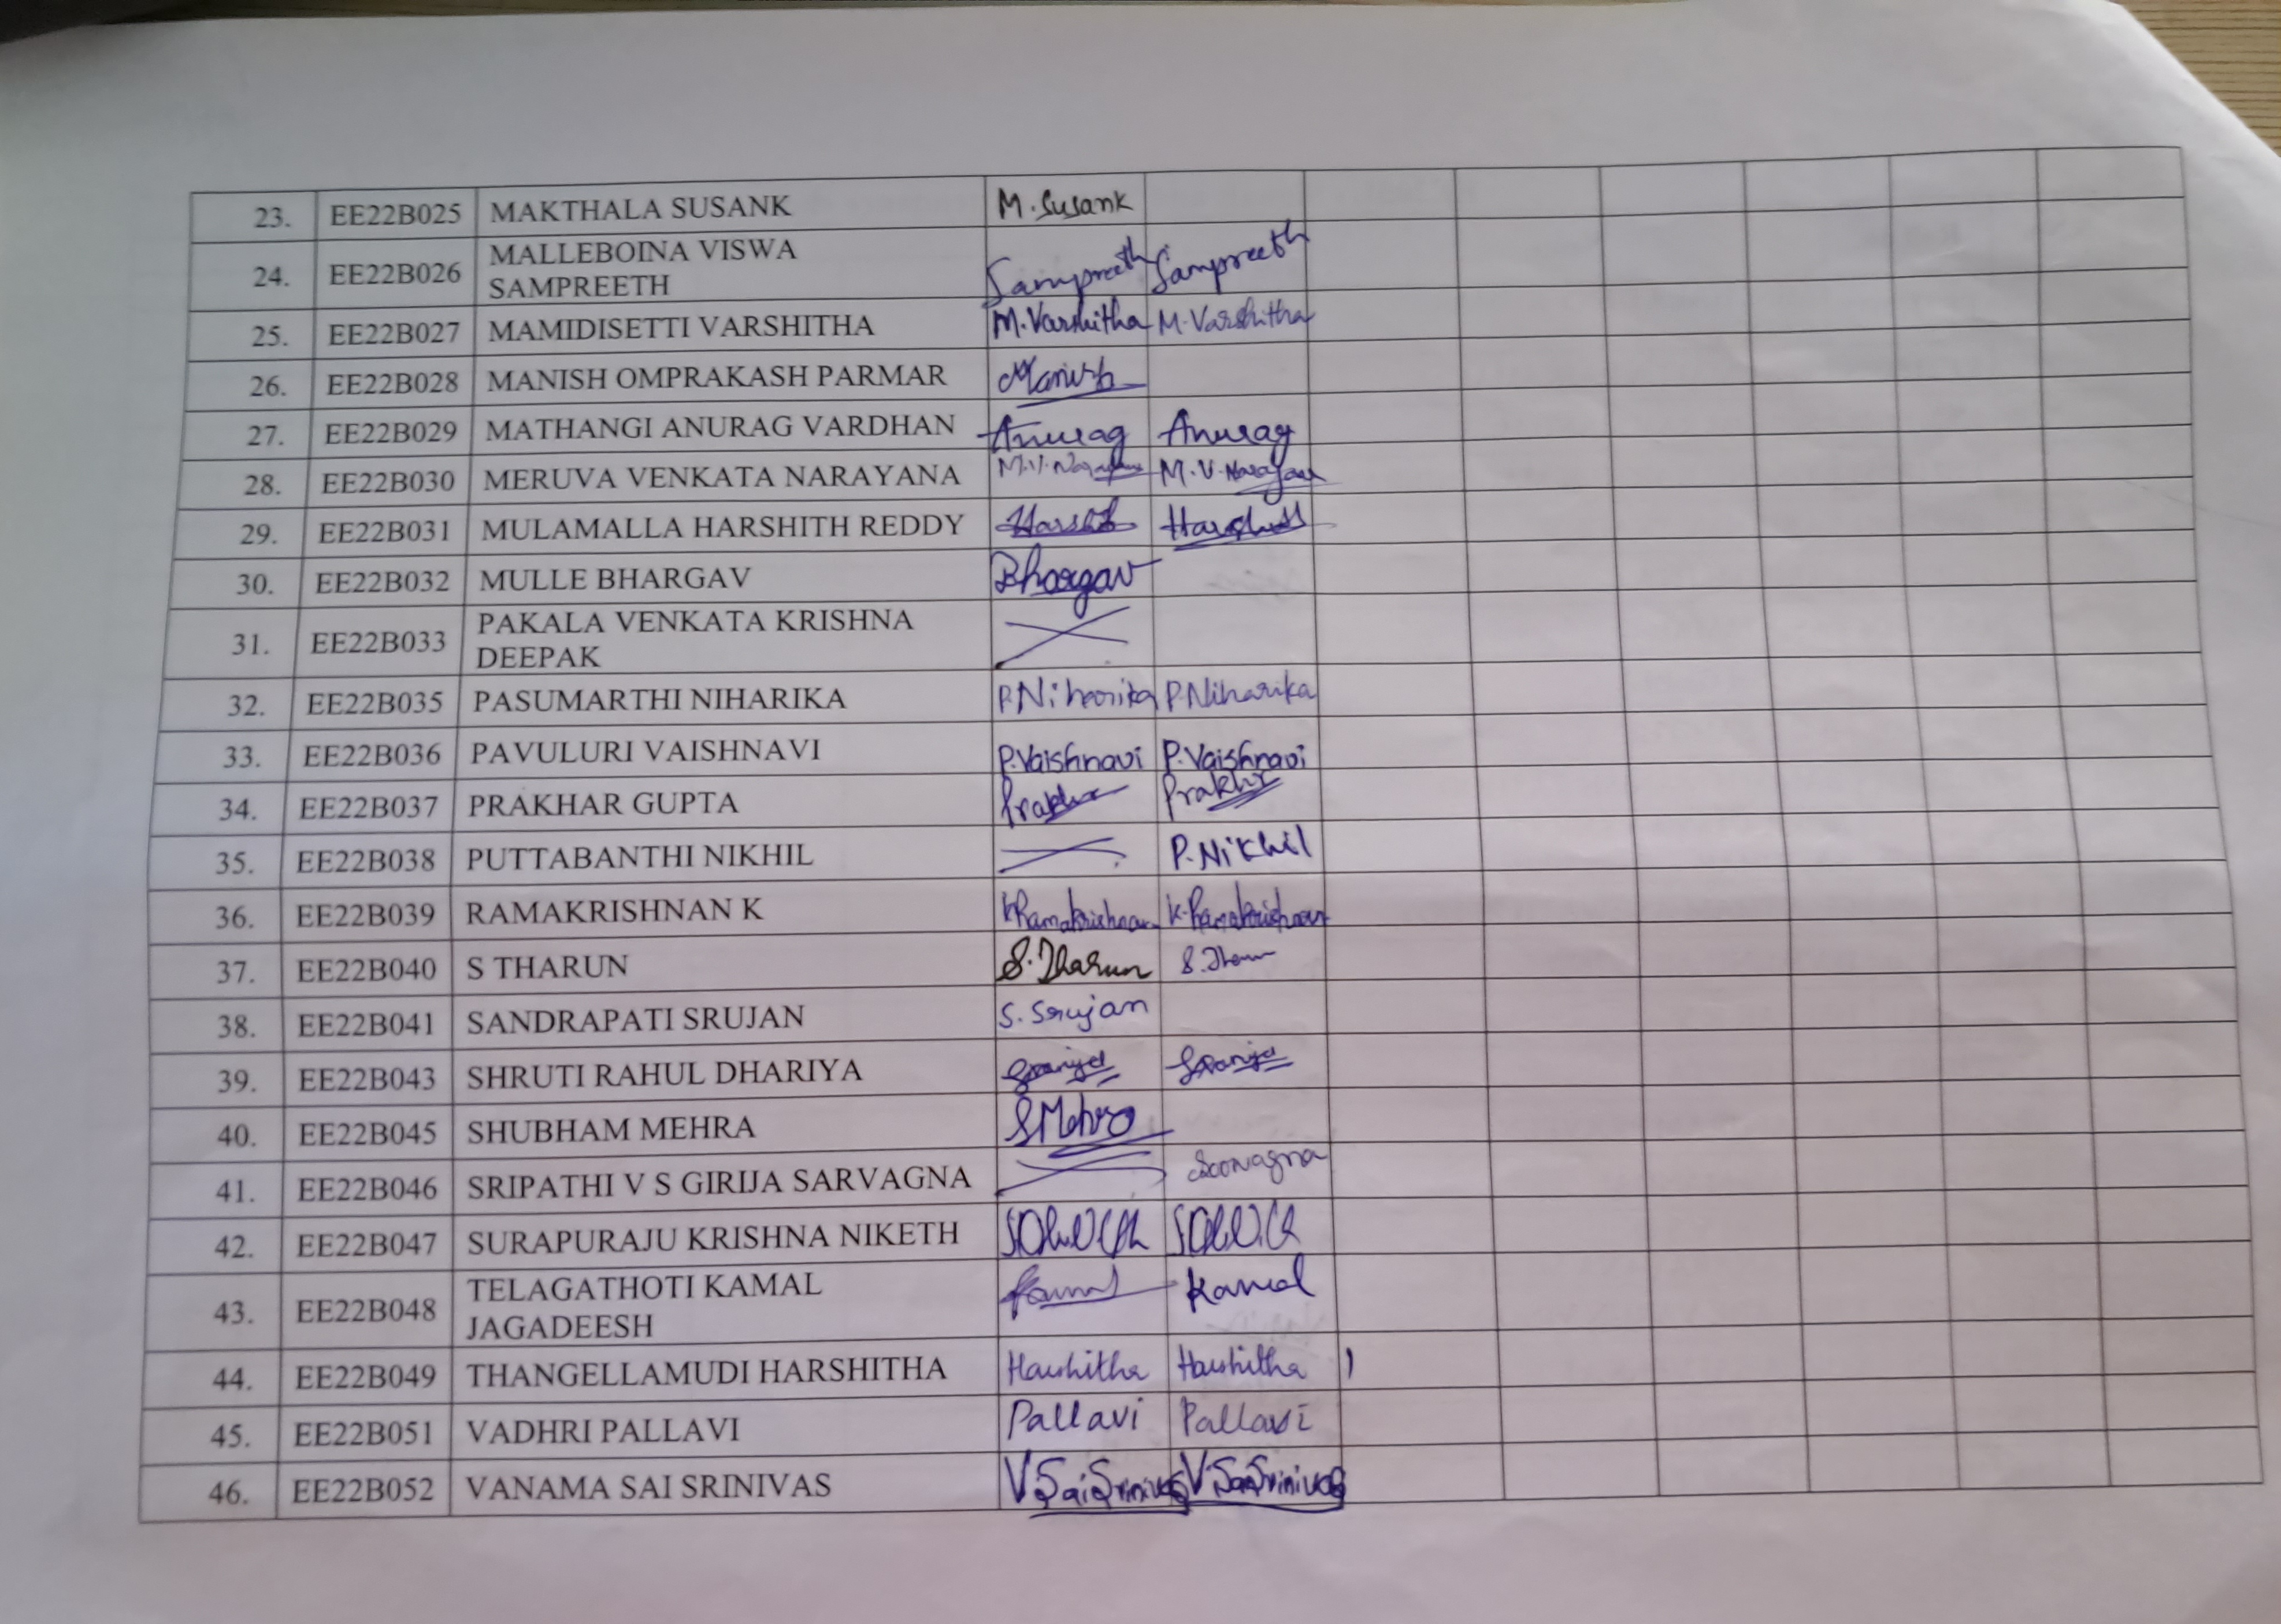 23. EE22B025 MAKTHALA SUSANK M. Susank
24. EE22B026 MALLEBOINA VISWA SAMPREETH Sampreeth Sampreeth
25. EE22B027 MAMIDISETTI VARSHITHA M. Varshitha M. Varshitha
26. EE22B028 MANISH OMPRAKASH PARMAR Manish
27. EE22B029 MATHANGI ANURAG VARDHAN Anurag Anurag
28. EE22B030 MERUVA VENKATA NARAYANA M. V. M. V.
29. EE22B031 MULAMALLA HARSHITH REDDY
30. EE22B032 MULLE BHARGAV Bhargav
31. EE22B033 PAKALA VENKATA KRISHNA DEEPAK
32. EE22B035 PASUMARTHI NIHARIKA P. Niharika P. Niharika
33. EE22B036 PAVULURI VAISHNAVI P. Vaishnavi P. Vaishnavi
34. EE22B037 PRAKHAR GUPTA Prakhr Prakhr
35. EE22B038 PUTTABANTHI NIKHIL P. Nikhil
36. EE22B039 RAMAKRISHNAN K K Ramakrishnan K. Ramakrishnan
37. EE22B040 S THARUN S. Tharun S.
38. EE22B041 SANDRAPATI SRUJAN S. Srujan
39. EE22B043 SHRUTI RAHUL DHARIYA
40. EE22B045 SHUBHAM MEHRA S Mehra
41. EE22B046 SRIPATHI V S GIRIJA SARVAGNA Sarvagna
42. EE22B047 SURAPURAJU KRISHNA NIKETH
43. EE22B048 TELAGATHOTI KAMAL JAGADEESH Kamal Kamal
44. EE22B049 THANGELLAMUDI HARSHITHA Harshitha Harshitha
45. EE22B051 VADHRI PALLAVI Pallavi Pallavi
46. EE22B052 VANAMA SAI SRINIVAS V. Sai Srinivas V. Sai Srinivas